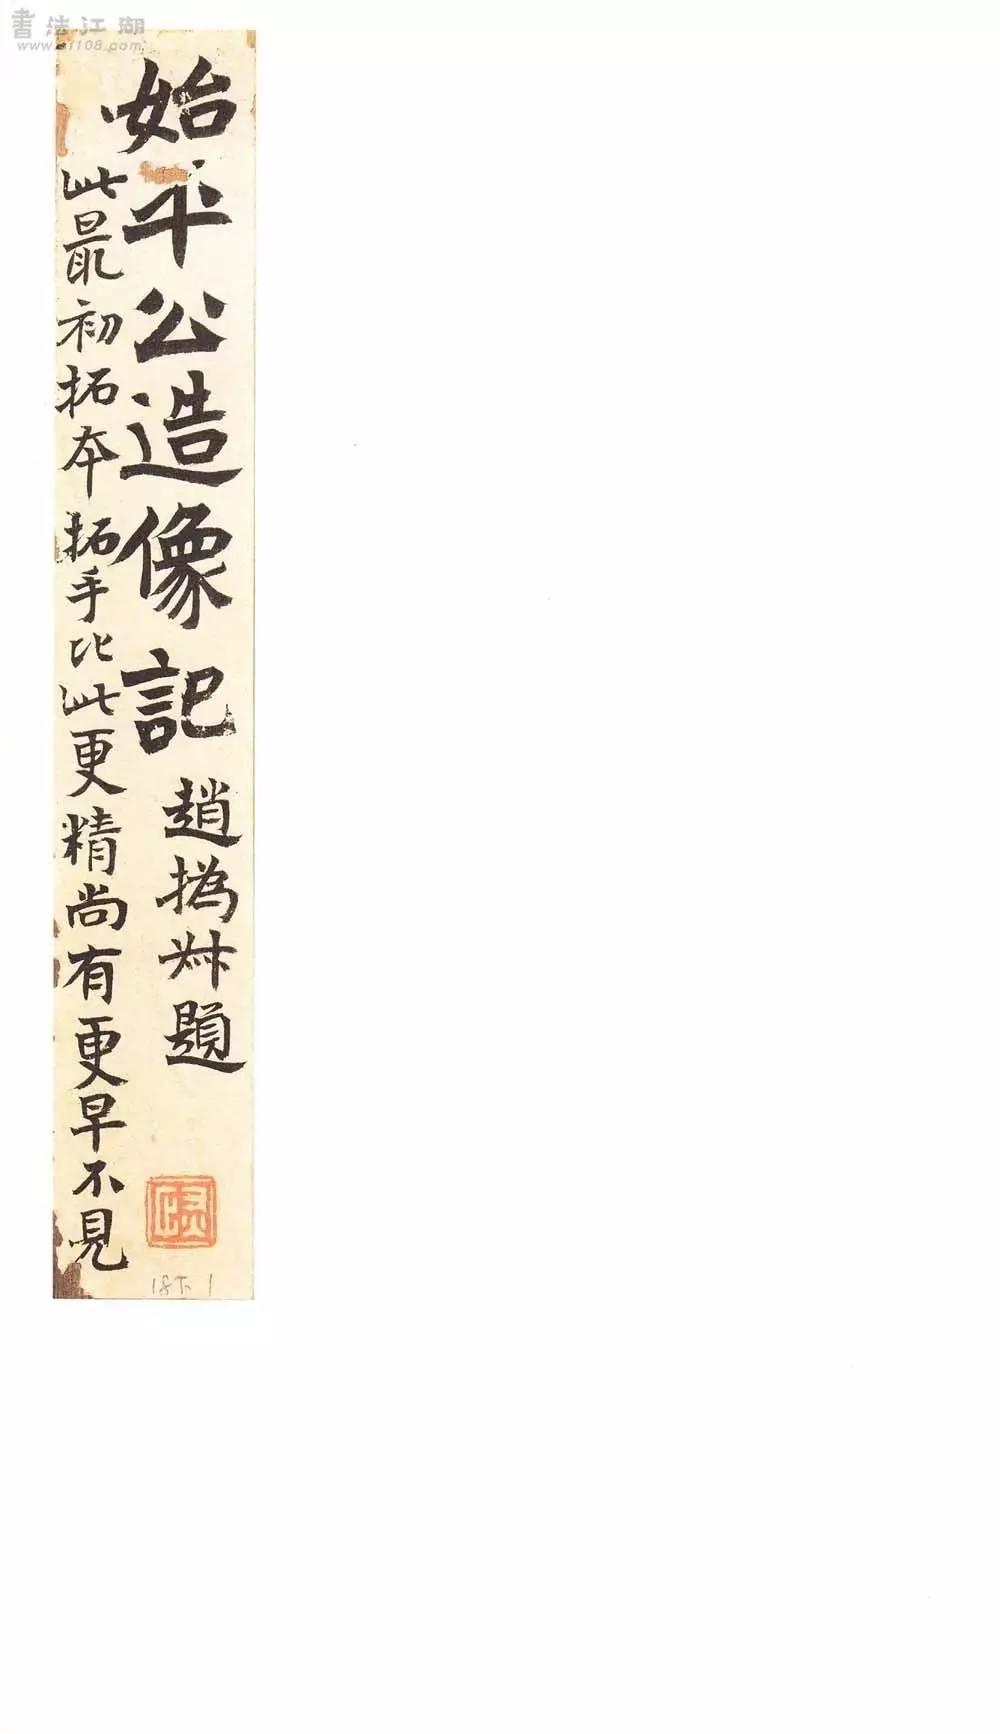 書法江湖
www.sf108.com
始平公造像記
趙撝叔題
此最初拓本拓手比此更精尚有更早不見
18下 1